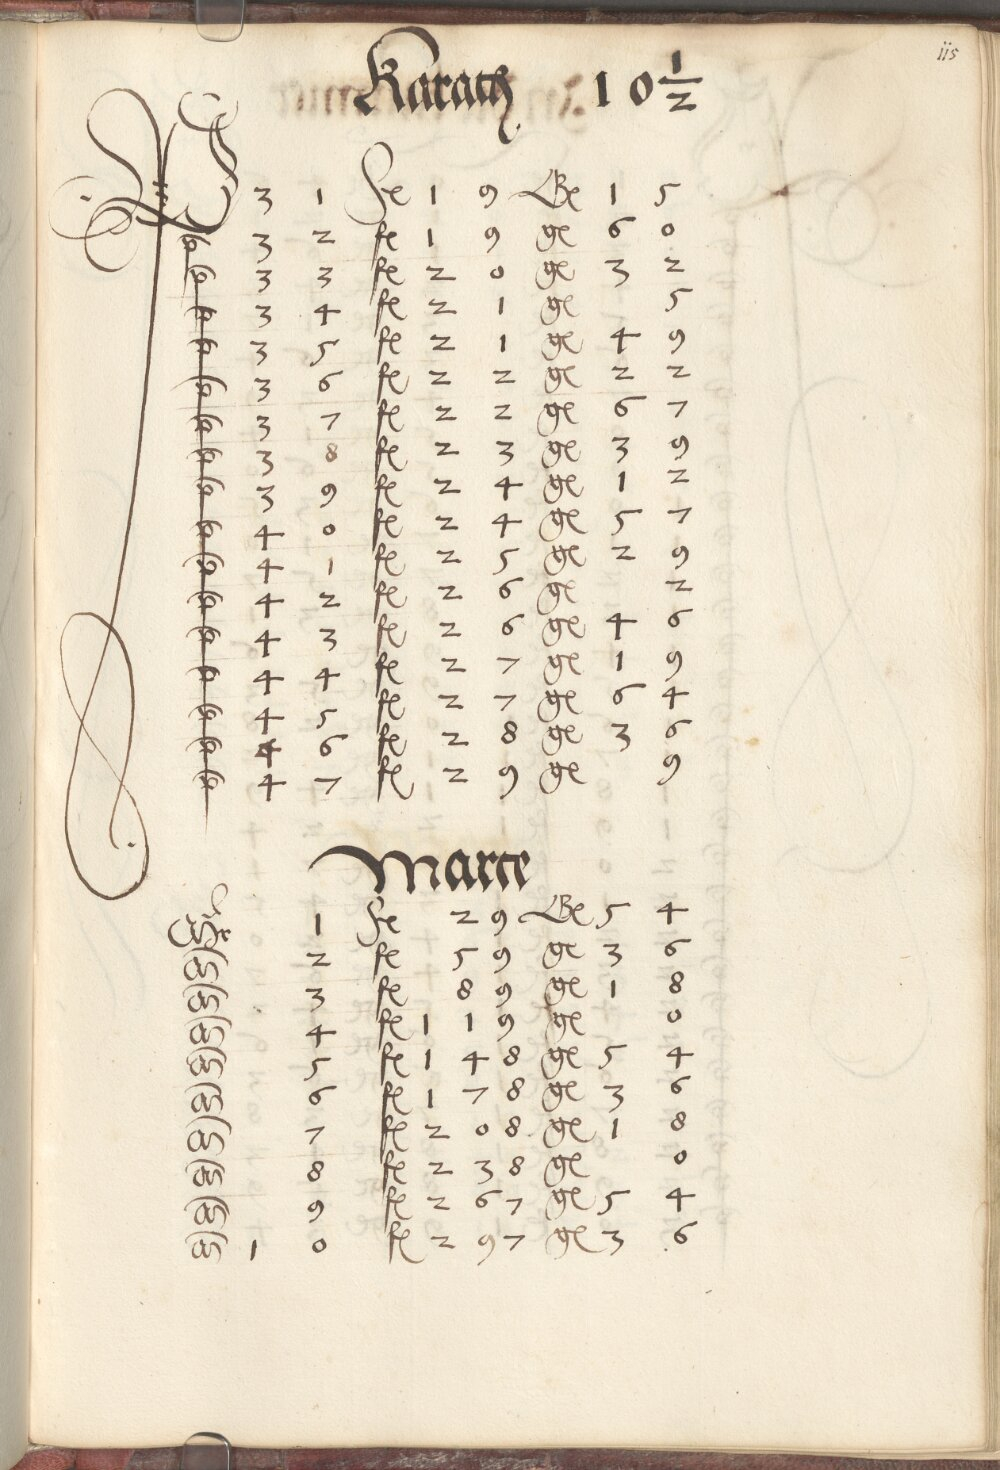 115
Karath 10 1/2
3 1 fl 1 9 Ge 1 5
3 2 fl 1 9 ge 6 0
3 3 fl 2 0 ge 3 2
3 4 fl 2 1 ge 5
3 5 fl 2 1 ge 4 9
3 6 fl 2 2 ge 2 2
3 7 fl 2 2 ge 6 7
3 8 fl 2 3 ge 3 9
3 9 fl 2 4 ge 1 2
4 0 fl 2 4 ge 5 7
4 1 fl 2 5 ge 2 9
4 2 fl 2 6 ge 2
4 3 fl 2 6 ge 4 6
4 4 fl 2 7 ge 1 9
4 5 fl 2 7 ge 6 4
4 6 fl 2 8 ge 3 6
4 7 fl 2 9 ge 9
Marck
1 fl 2 9 Ge 5 4
2 fl 5 9 ge 3 6
3 fl 8 9 ge 1 8
4 fl 1 1 9 ge 0
5 fl 1 4 8 ge 5 4
6 fl 1 7 8 ge 3 6
7 fl 2 0 8 ge 1 8
8 fl 2 3 8 ge 0
9 fl 2 6 7 ge 5 4
1 0 fl 2 9 7 ge 3 6